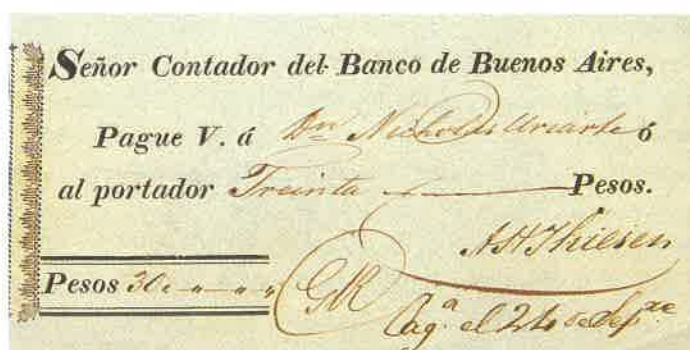 Señor Contador del Banco de Buenos Aires,
Pague V. á Dn Nicholas Uriarte ó
al portador Treinta Pesos.
A H Thiesen
Pesos 30 GR
Pag.ª el 24 de Sepre